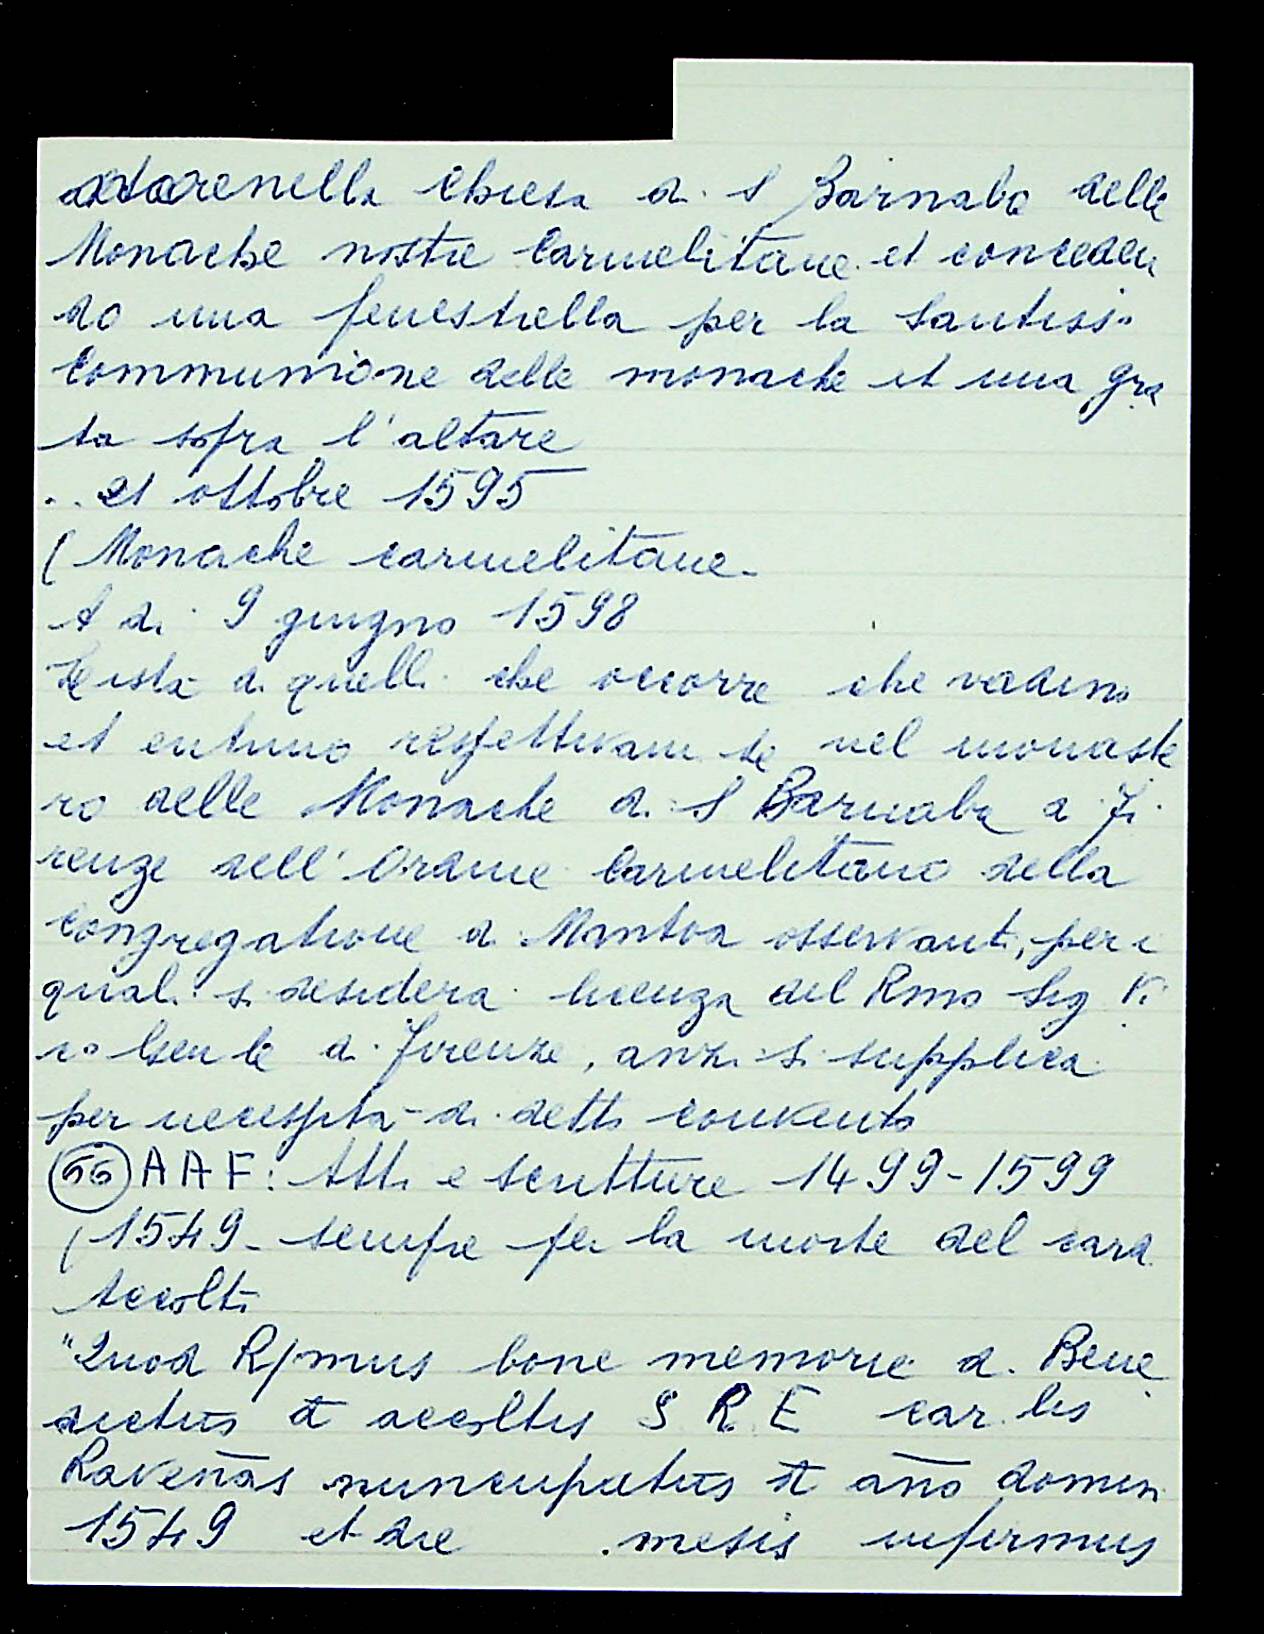 nella chiesa di S Barnaba delle
Monache nostre Carmelitane et conceden
do una fenestrella per la Santiss.
Communione delle monache et una gra
ta sopra l'altare
.. et ottobre 1595
( Monache carmelitane.
A di 9 giugno 1598
Lista di quelli che occorre che vadino
et entrino respettivam te nel monaste
ro delle Monache di S Barnaba di Fi
renze dell'Ordine Carmelitano della
Congregatione di Mantva osservanti, per i
quali si desidera licenza del Rmo Sig Vi
di Firenze, anzi si supplica
per necessita di detto convento
66 AAF: Atti e scritture 1499-1599
( 1549 - sempre per la morte del card.
Accolti
"Quod R/mus bone memorie d. Bene
dictus de accoltis S R E car.lis
Raveñas nuncupatus de año domin
1549 et die mesis infermus